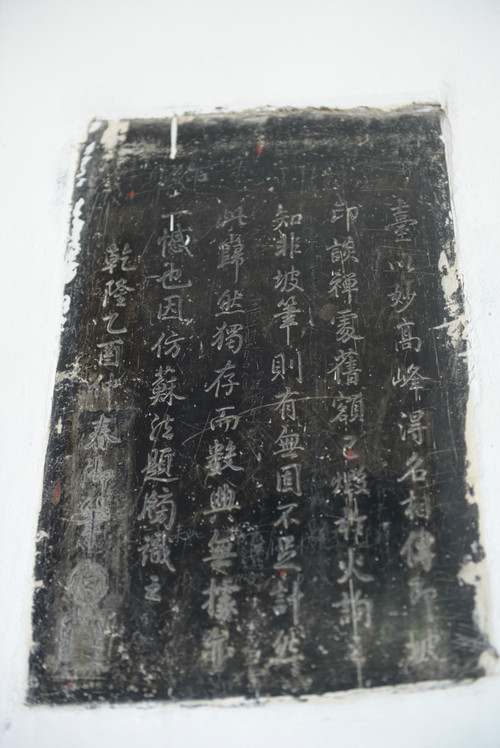 臺以妙高峰得名相傳即坡
印談禪處舊額已燬於火詢
知非坡筆則有無固不足計然
此巋然獨存而數典無據亦
一憾也因仿蘇法題額識之
乾隆乙酉仲春御筆